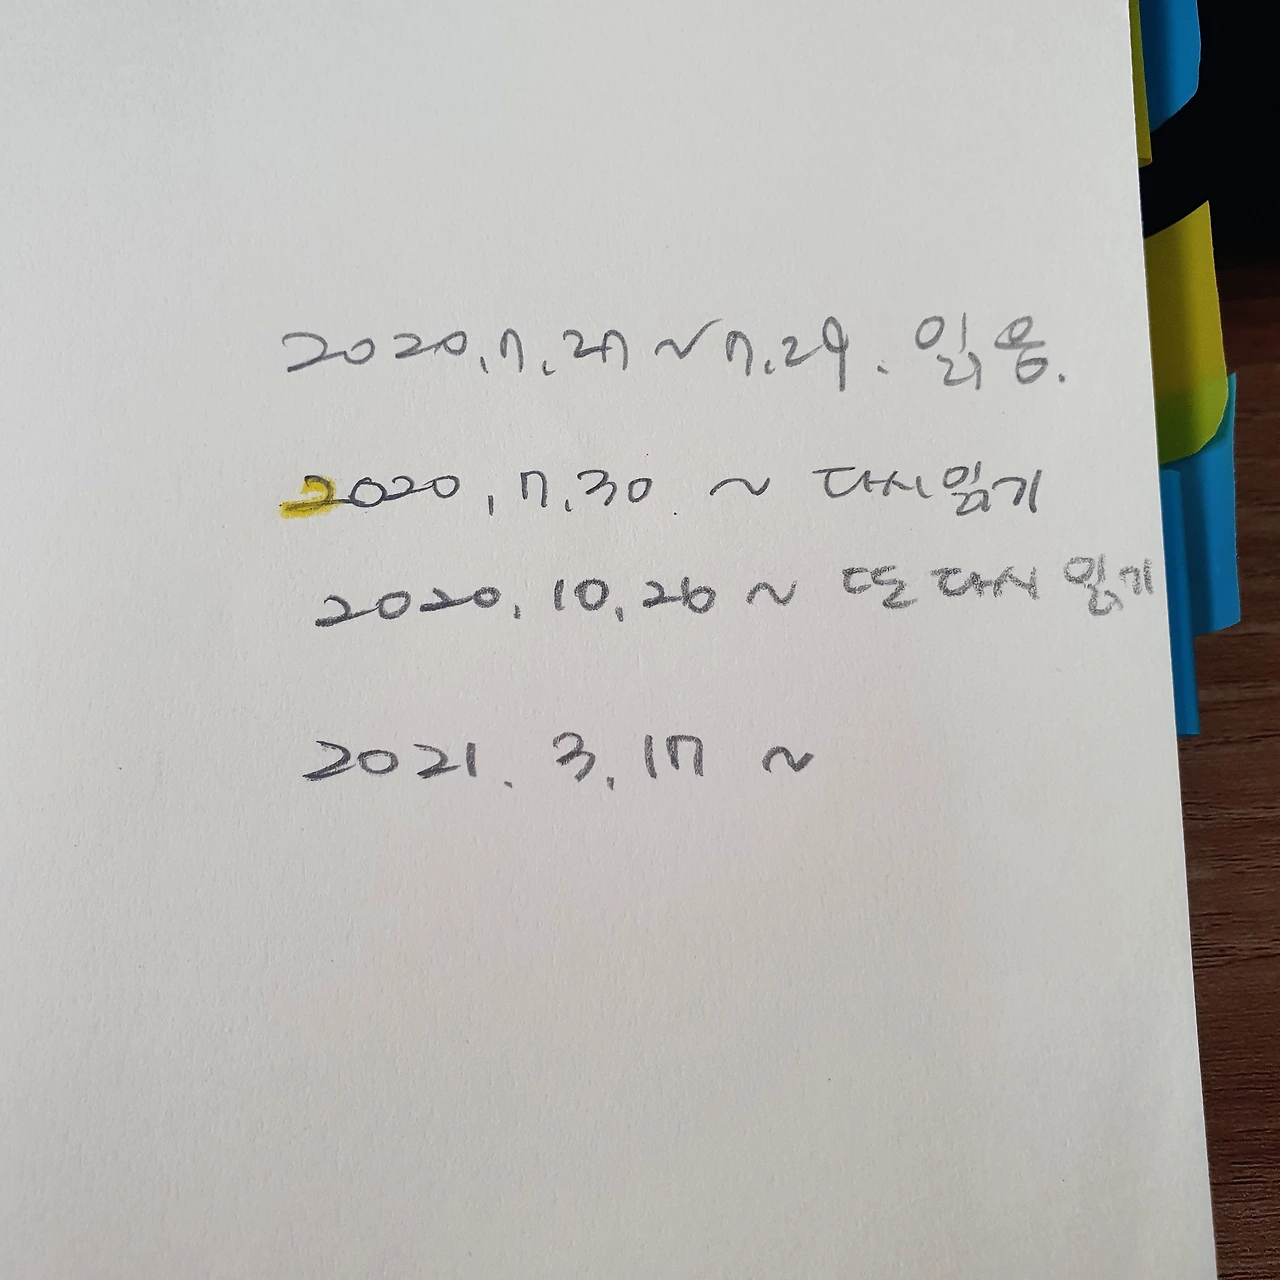 2020.7.27~7.29. 읽음.
2020.7.30 ~ 다시읽기
2020.10.26 ~ 또 다시 읽기
2021.3.17 ~